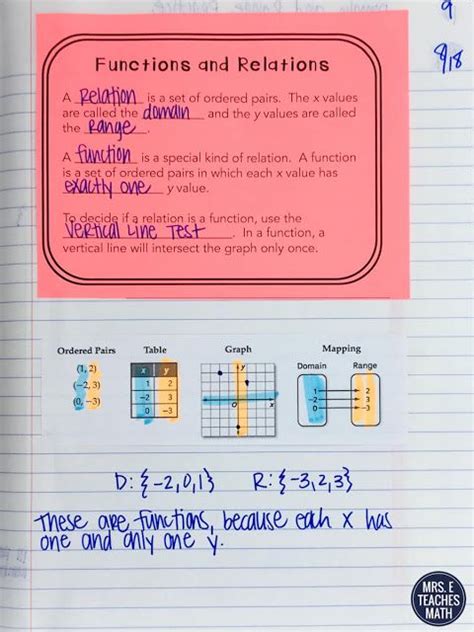 9
8/18
Functions and Relations
A Relation is a set of ordered pairs. The x values
are called the domain and the y values are called
the Range.
A function is a special kind of relation. A function
is a set of ordered pairs in which each x value has
exactly one y value.
To decide if a relation is a function, use the
Vertical Line Test. In a function, a
vertical line will intersect the graph only once.
Ordered Pairs Table Graph Mapping
(1, 2)
(−2, 3)
(0, −3)
x y
1 2
−2 3
0 −3
y
O x
Domain Range
1 2
−2 3
0 −3
D: {−2,0,1} R: {−3,2,3}
These are functions, because each x has
one and only one y.
MRS. E
TEACHES
MATH